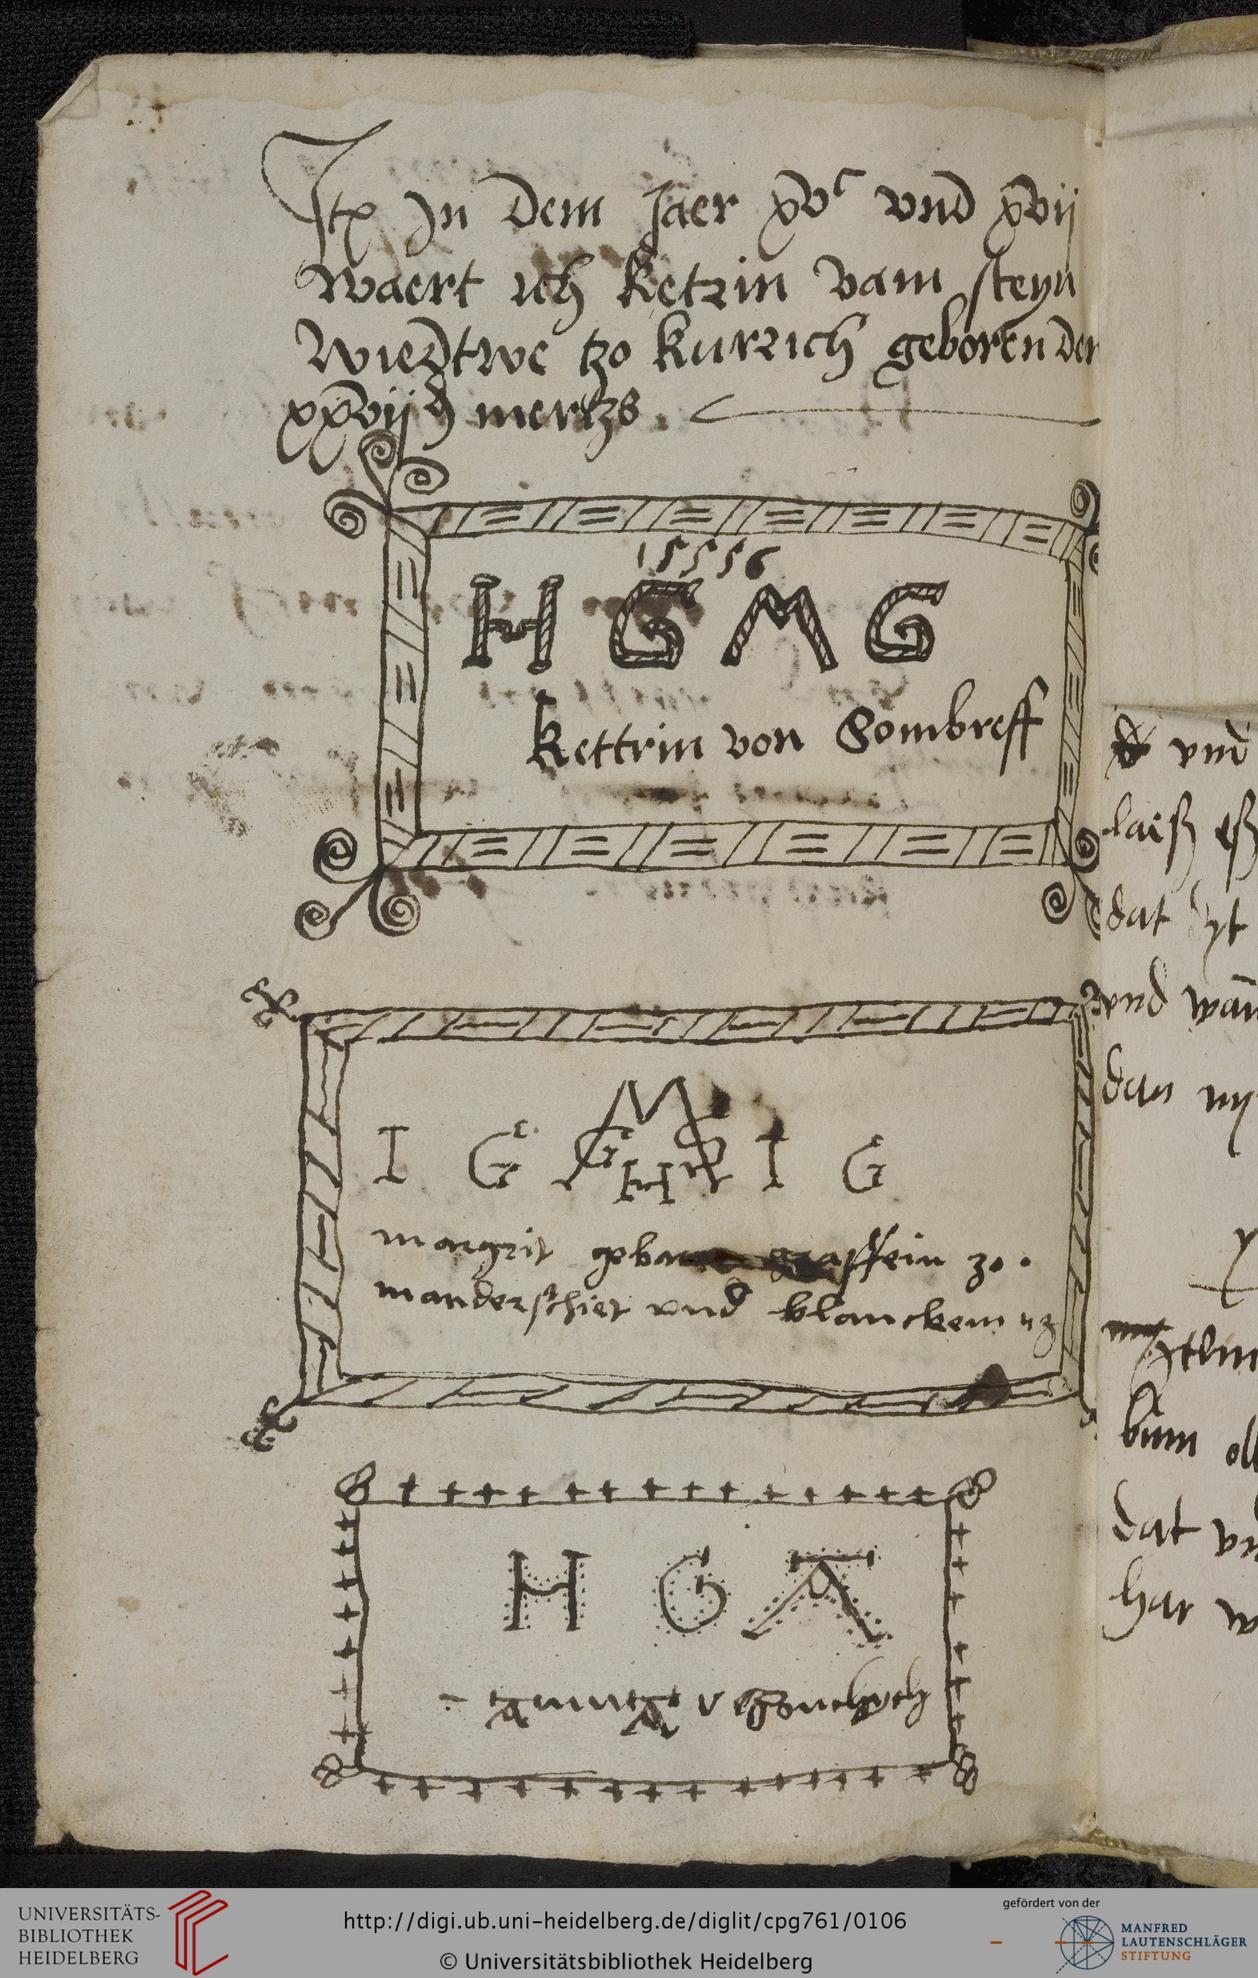 Itx In dem Jaer xvc vnd xvij
waert ich ketzin vam steyn
wiedtwe tzo kurzich geboren den
xxviij mertzs
15556
H G M G
kettrin von Sombreff
I G G M S H I G
margrit gebaren graffein zo.
manderschiet vnd blanckem
H G A
vnd
laeß eß
dat dyt
vnd wan
den
dat
har w
UNIVERSITÄTS-
BIBLIOTHEK
HEIDELBERG
http://digi.ub.uni-heidelberg.de/diglit/cpg761/0106
© Universitätsbibliothek Heidelberg
gefördert von der
MANFRED
LAUTENSCHLÄGER
STIFTUNG